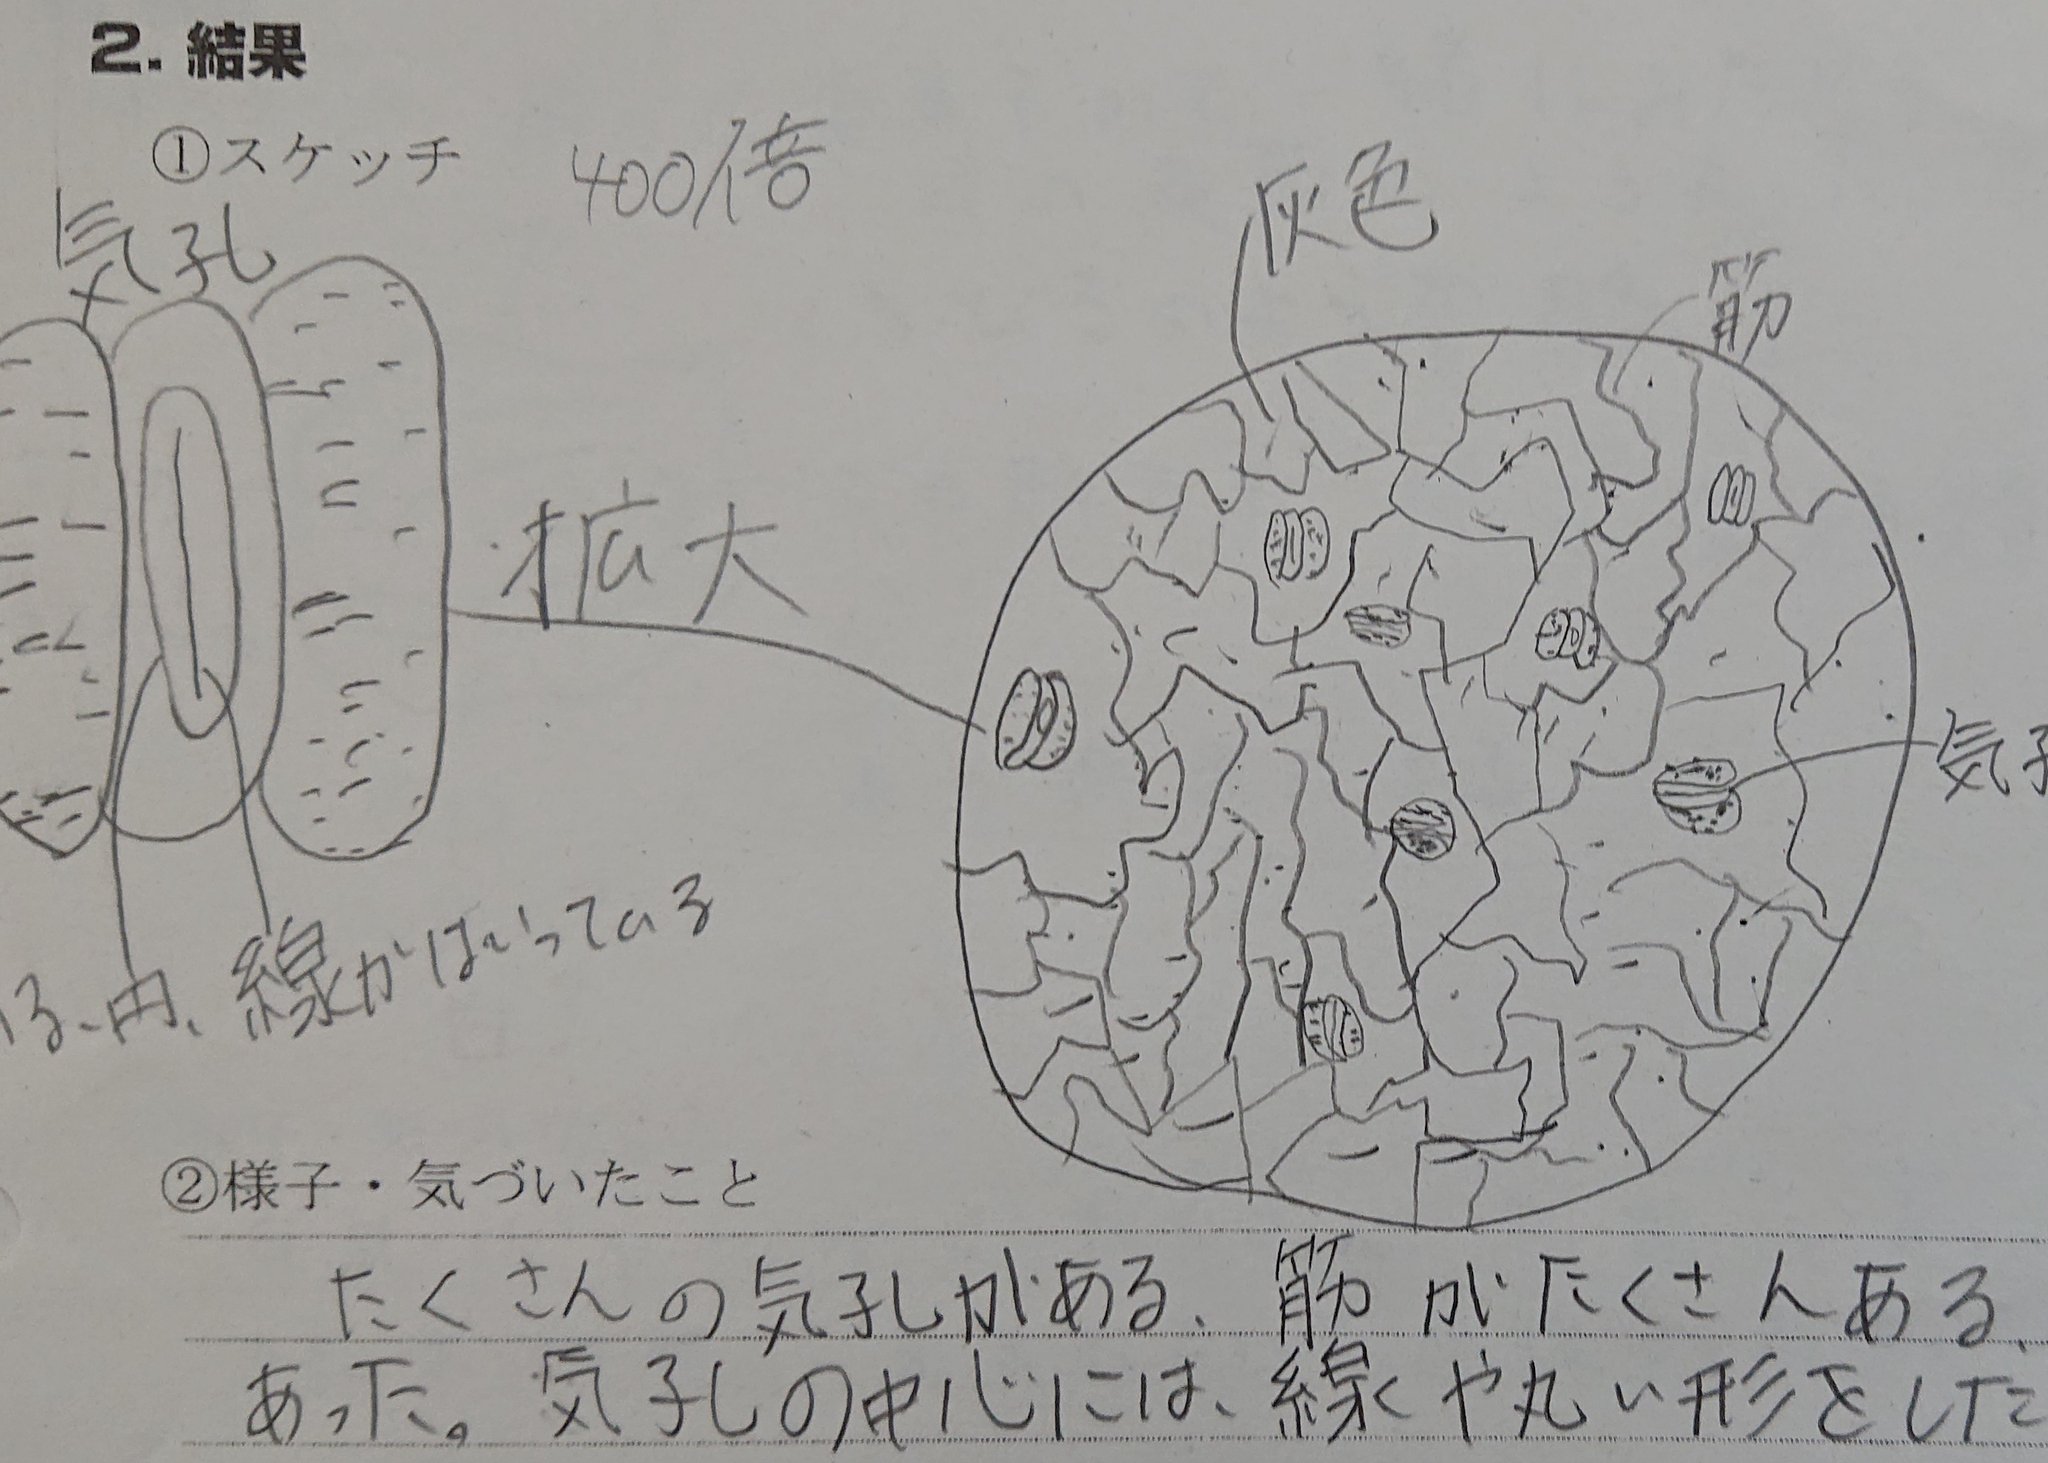 2. 結果
①スケッチ 400倍
気孔
灰色
筋
拡大
気孔
いる、円、線がはいっている
②様子・気づいたこと
たくさんの気孔がある、筋がたくさんある、
あった。気孔の中心には、線くや丸い形をした